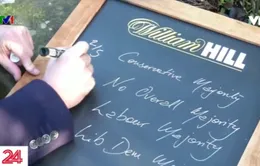 William HILL
2/5
Conservative Majority
No Overall Majority
Labour Majority
Lib Dem
24